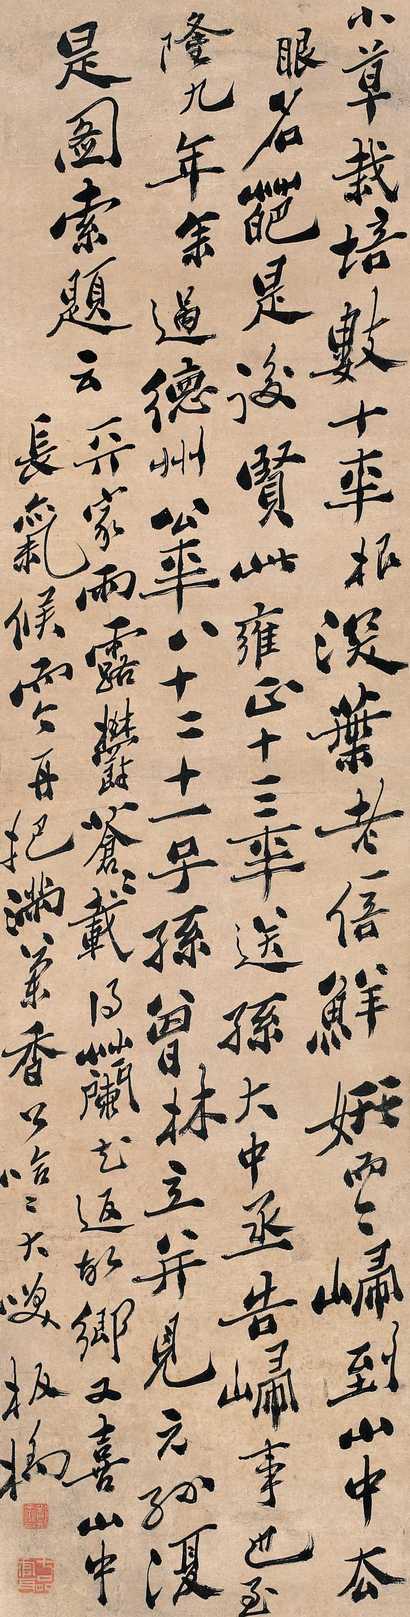 小草栽培數十年根深葉老倍鮮妍而今歸到山中去
眼名葩是後賢此雍正十三年送孫大中丞告歸事也至
隆九年余過德州公年八十二十一子孫曾林立并見元孫復
是圖索題云 家雨露鬱蒼蒼載得蘭花返故鄉又喜山中
長氣候而今再挹滿蘭香公哈哈大笑板橋